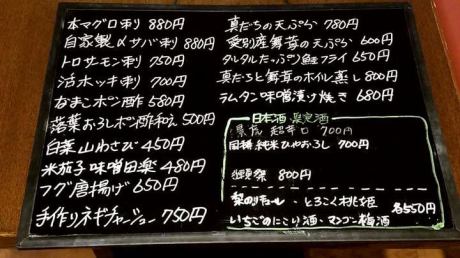 本マグロ刺 880円
自家製〆サバ刺 880円
トロサーモン刺 750円
活ホッキ刺 700円
なまこポン酢 580円
落葉おろしポン酢和え 500円
白菜山わさび 450円
米茄子味噌田楽 480円
フグ唐揚げ 650円
手作りネギチャーシュー 750円
真だちの天ぷら 780円
愛別産舞茸の天ぷら 600円
タルタルたっぷり鮭フライ 650円
真だちと舞茸のホイル蒸し 800円
ラムタン味噌漬け焼き 680円
日本酒 限定酒
超辛口 700円
国稀 純米ひやおろし 700円
獺祭 800円
梨のリキュール・とろこく桃姫
いちごのにごり酒・マンゴー梅酒 各550円